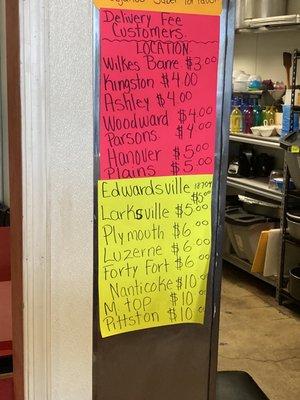 Delivery Fee
Customers
LOCATION
Wilkes Barre $3.00
Kingston $4.00
Ashley $4.00
Woodward $4.00
Parsons $4.00
Hanover $5.00
Plains $5.00
Edwardsville 18704 $5.00
Larksville $5.00
Plymouth $6.00
Luzerne $6.00
Forty Fort $6.00
Nanticoke $10.00
M. TOP $10.00
Pittston $10.00